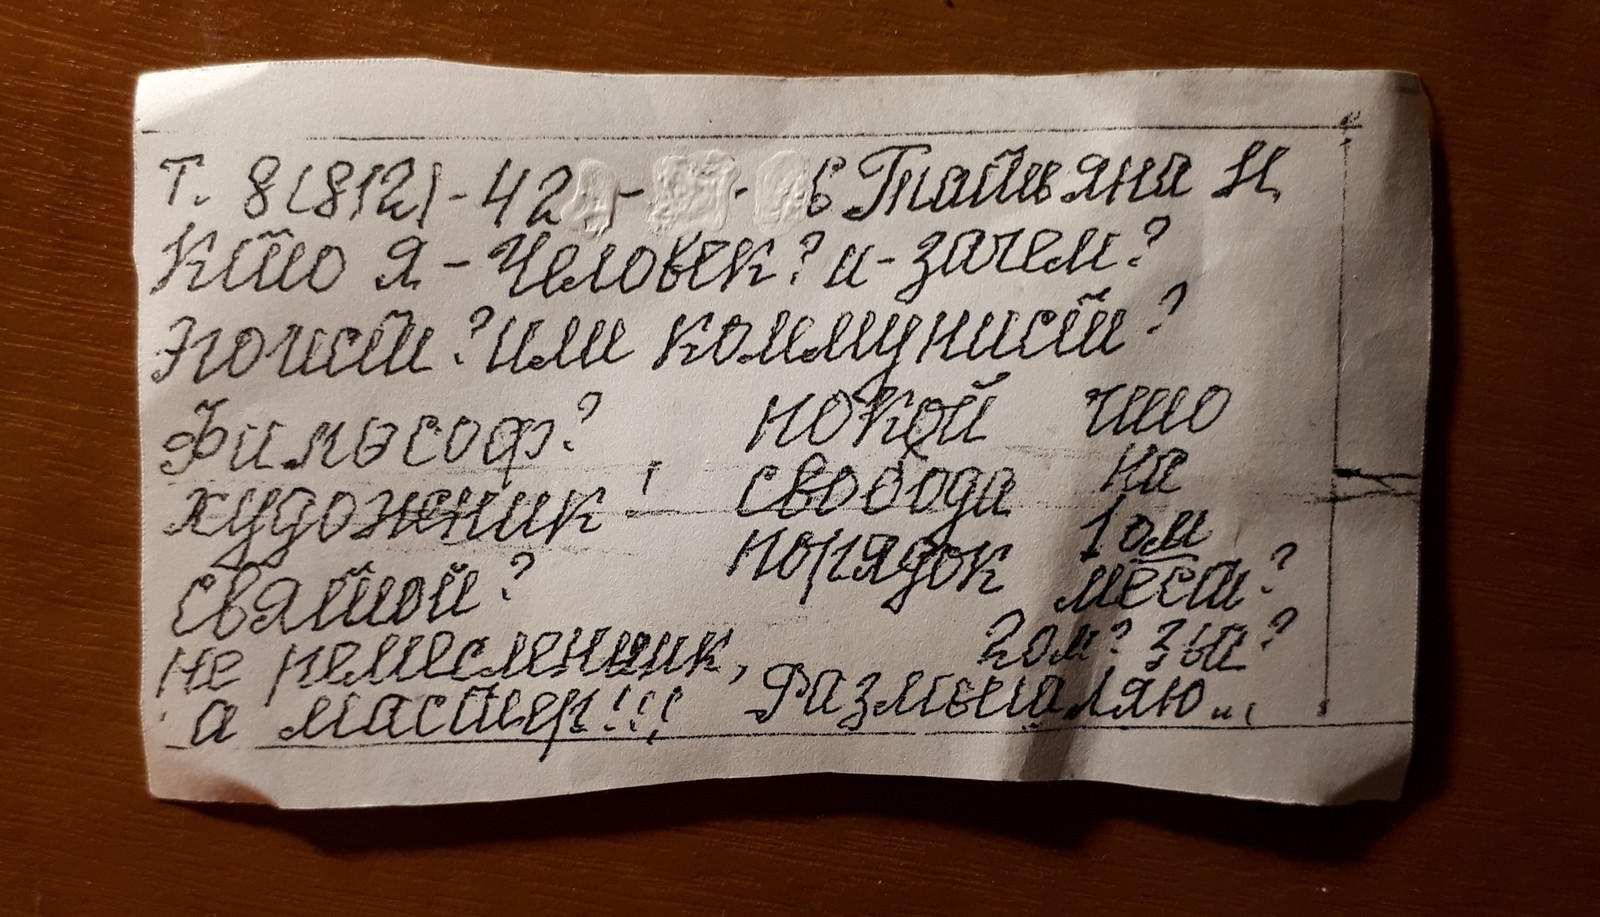 Т. 8(812)-42 - - 6 Татьяна Н
Кто я - человек? и - зачем?
Эгоист? или коммунист?
Философ?
художник!
святой?
не ремесленник,
а мастер!!!
покой
свобода
порядок
что
на
1ом
месте?
2ом? 3ьи?
Размышляю...